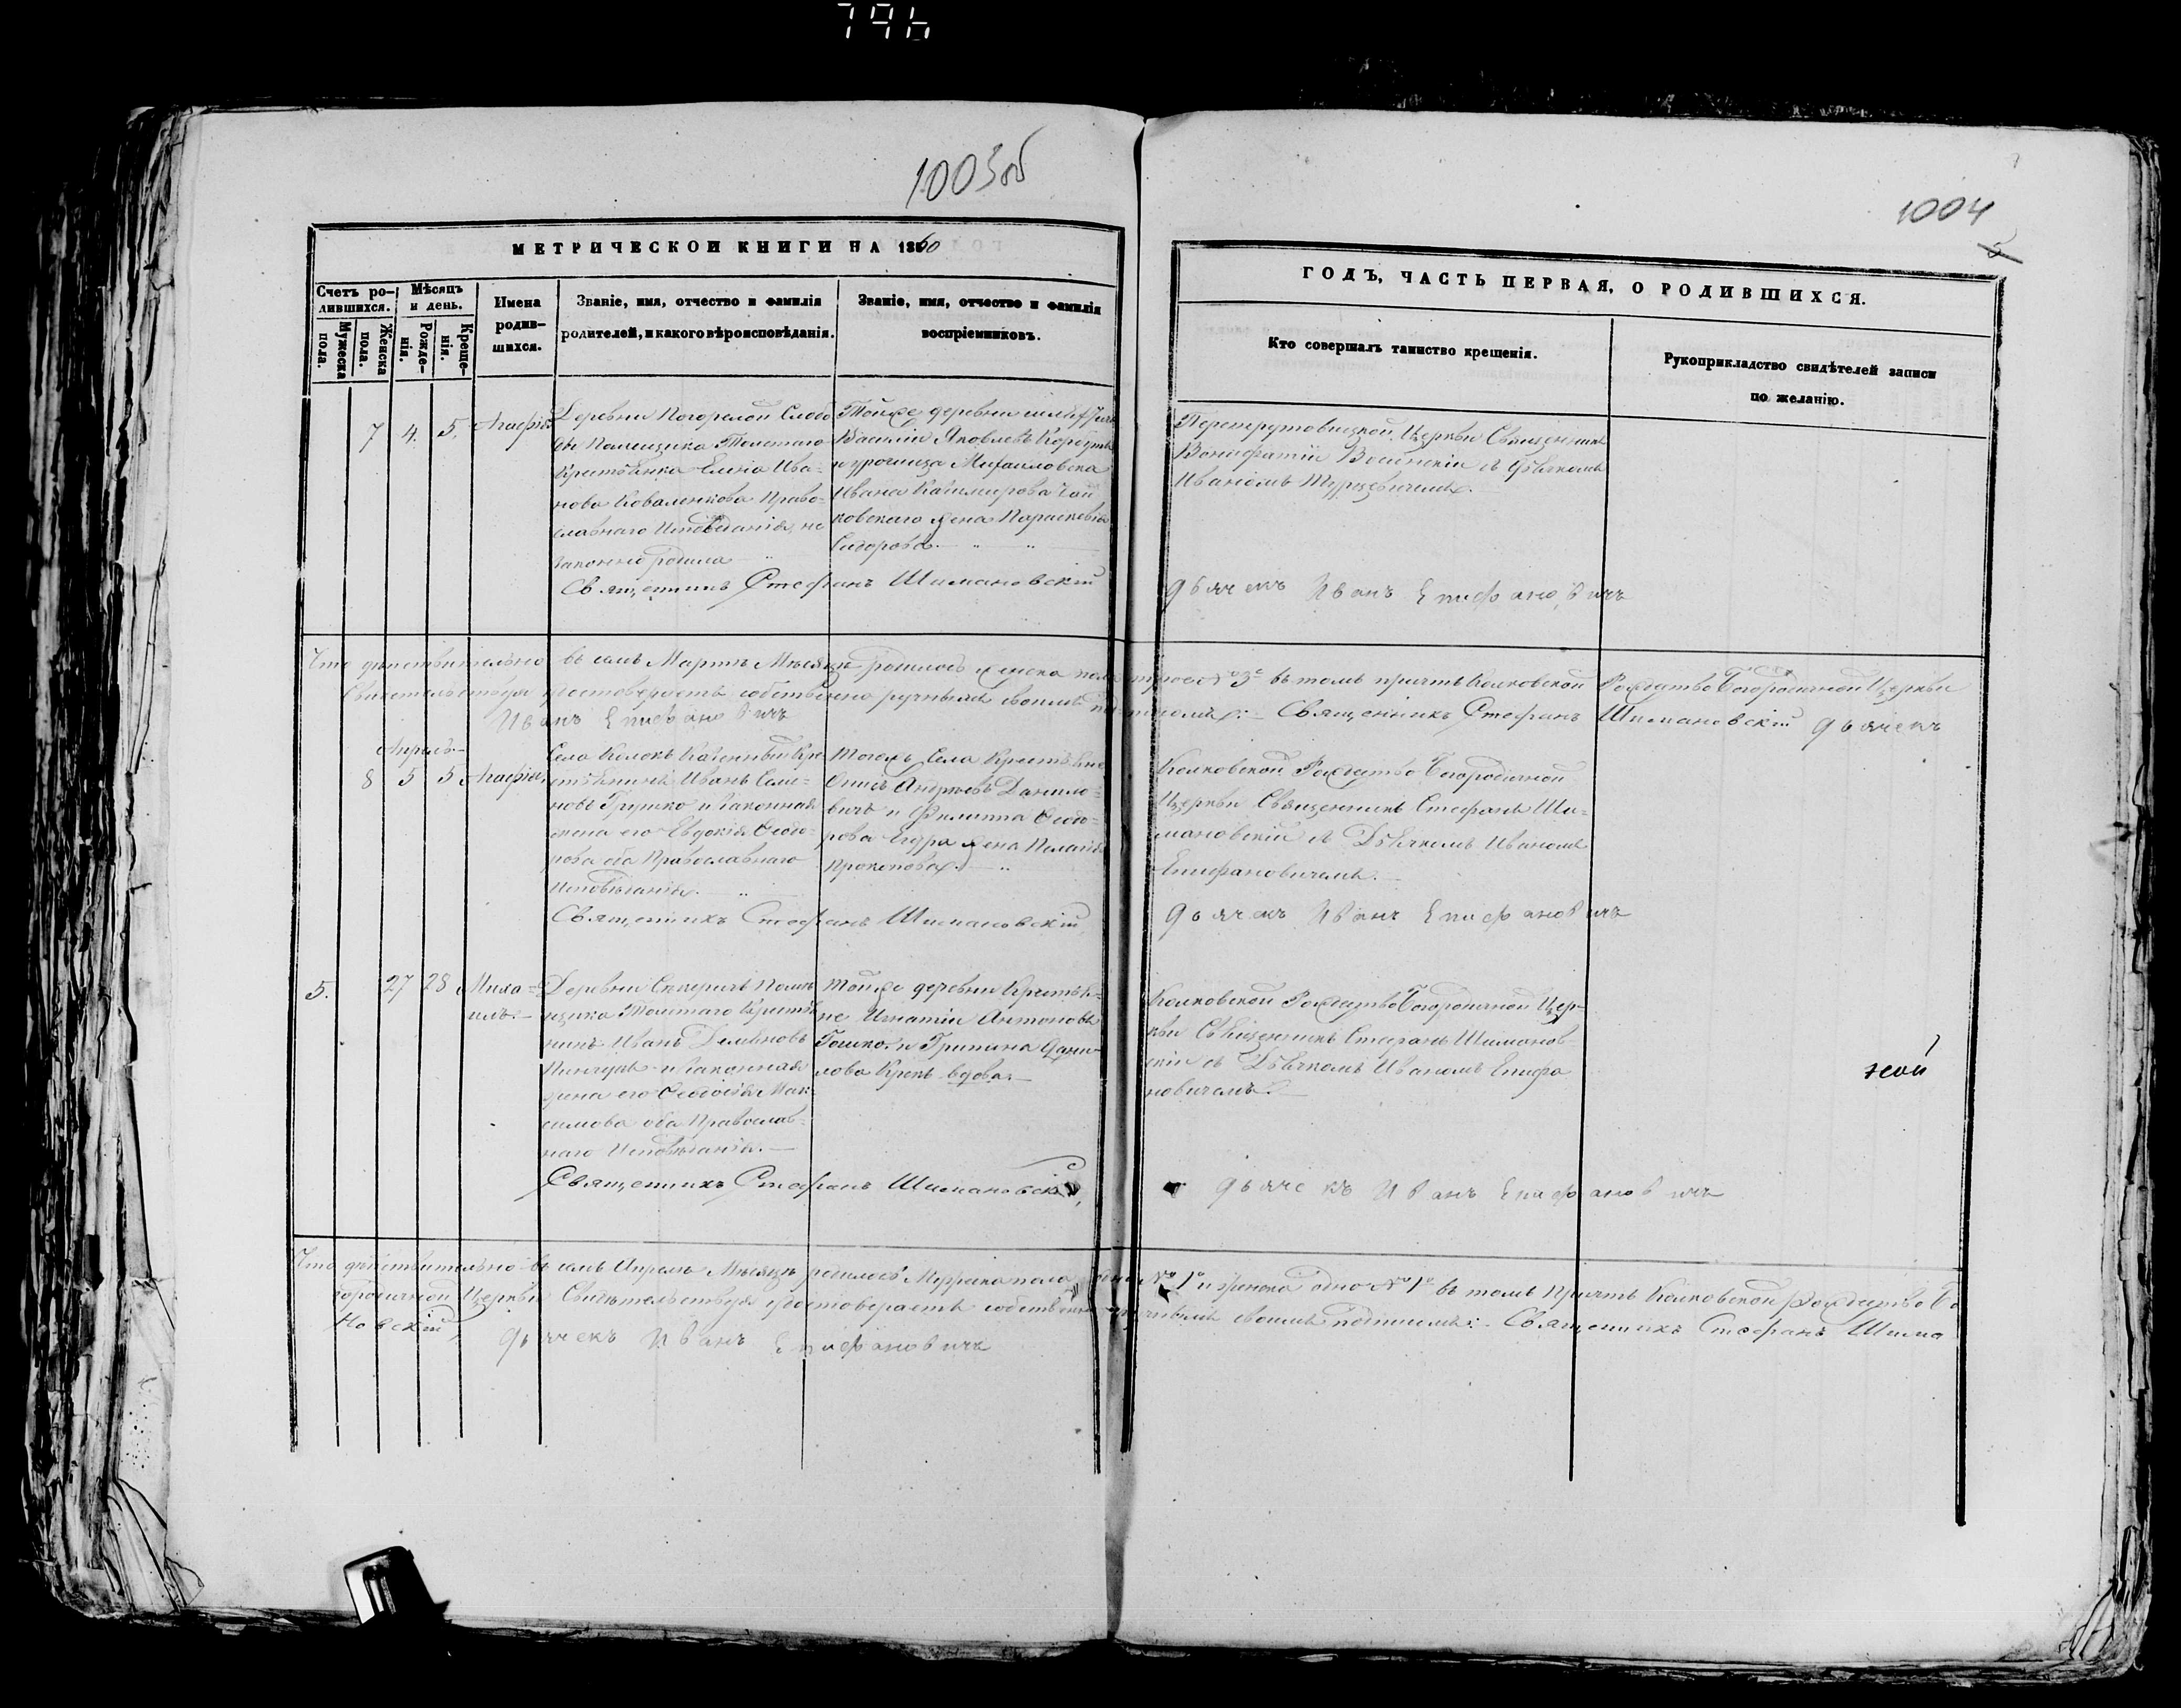 796
1003об
1004
МЕТРИЧЕСКОЙ КНИГИ НА 1860
ГОДЪ, ЧАСТЬ ПЕРВАЯ, О РОДИВШИХСЯ.
Счетъ ро-
дившихся.
Мужеска
пола.
Женска
пола.
Мѣсяцъ
и день.
Рожде-
нія.
Креще-
нія.
Имена
родив-
шихся.
Званіе, имя, отчество и фамилія
родителей, и какого вѣроисповѣданія.
Званіе, имя, отчество и фамилія
воспріемниковъ.
Кто совершалъ таинство крещенія.
Рукоприкладство свидѣтелей записи
по желанію.
7 4. 5. Агафія
Деревни Погорелой Слобо
ды Помещика Толстаго
Крестьянка Елена Ива-
нова Коваленкова Право-
славнаго Исповѣданія, не
законно родила
Тойже деревни
Василій Яковлевъ
и урочища Михаиловска
Ивана Казимирова
ковскаго жена Параскевія
Сидорова.
Священникъ Стефанъ Шимановскій
Церкви Священникъ
Вонифатій Воинскій съ Дьячкомъ
Иваномъ
Дьячекъ Иванъ Епифановичъ
Что дѣйствительно въ семъ Мартѣ Мѣсяцѣ родилось женска пола трое № 3º въ томъ причтъ Колковской Рождество Богородичной Церкви
Свидетельствуя удостоверяетъ собственно ручнымъ своимъ подписомъ: Священникъ Стефанъ Шимановскій Дьячекъ
Иванъ Епифановичъ
Апрель
8 5 5 Агафія.
Села Колокъ Казенный Кре
стьянинъ Иванъ Семе-
новъ Грушко и Законная
жена его Евдокія Ѳеодо-
рова оба Православнаго
Исповѣданія.
Тогожъ Села Крестьяне
Андреевъ Данило-
вичъ и Филиппа Ѳеодо-
рова жена Пелагія
Прокопова.
Священникъ Стефанъ Шимановскій
Колковской Рождество Богородичной
Церкви Священникъ Стефанъ Ши-
мановскій съ Дьячкомъ Иваномъ
Епифановичемъ.
Дьячекъ Иванъ Епифановичъ
5. 27 28 Миха-
илъ.
Деревни Помѣ
щика Толстаго Крестья
нинъ Иванъ Демяновъ
и Законная
жена его Ѳеодосія Мак-
симова оба Православ-
наго Исповѣданія.
Тойже деревни Крестья-
не Игнатій Антоновъ
Гошко и Грипина Дани-
лова Крекъ вдова.
Священникъ Стефанъ Шимановскій,
Колковской Рождество Богородичной Цер-
кви Священникъ Стефанъ Шиманов-
скій съ Дьячкомъ Иваномъ Епифа
новичемъ.
Дьячекъ Иванъ Епифановичъ
Что дѣйствительно въ семъ Апрелѣ Мѣсяцѣ родилось Мужеска пола одно № 1º и женска одно № 1º въ томъ Причтъ Колковской Рождество Бо
городичной Церкви Свидѣтельствуя удостоверяетъ собственно ручнымъ своимъ подписомъ: Священникъ Стефанъ Шима
новскій, Дьячекъ Иванъ Епифановичъ